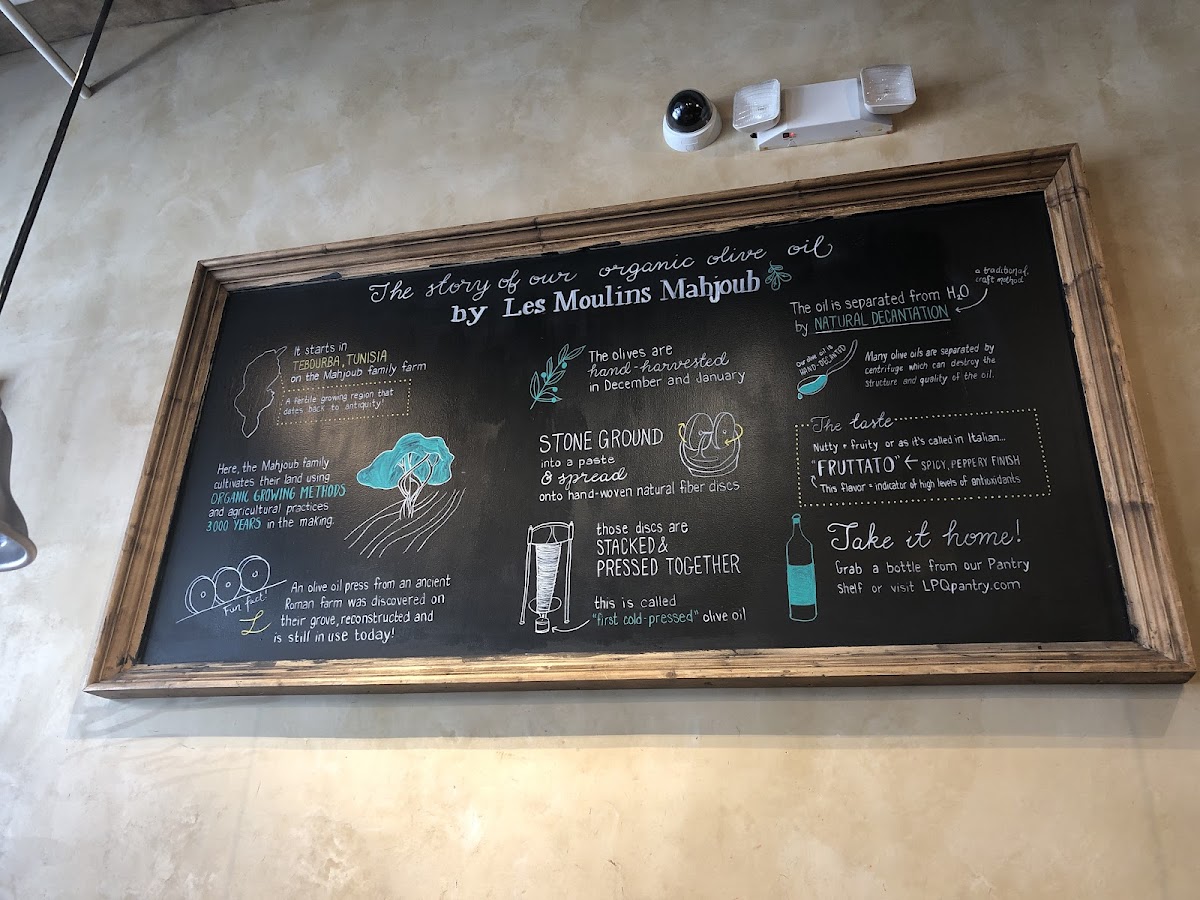 The story of our organic olive oil
by Les Moulins Mahjoub
It starts in
TEBOURBA, TUNISIA
on the Mahjoub family farm
A fertile growing region that
dates back to antiquity!
Here, the Mahjoub family
cultivates their land using
ORGANIC GROWING METHODS
and agricultural practices
3000 YEARS in the making.
Fun fact!
An olive oil press from an ancient
Roman farm was discovered on
their grove, reconstructed and
is still in use today!
The olives are
hand-harvested
in December and January
STONE GROUND
into a paste
& spread
onto hand-woven natural fiber discs
those discs are
STACKED &
PRESSED TOGETHER
this is called
"first cold-pressed" olive oil
The oil is separated from H2O
by NATURAL DECANTATION
a traditional,
craft method
Our olive oil is
HAND-DECANTED
Many olive oils are separated by
centrifuge which can destroy the
structure and quality of the oil.
The taste
Nutty + fruity or as it's called in Italian...
"FRUTTATO" ← SPICY, PEPPERY FINISH
This flavor = indicator of high levels of antioxidants
Take it home!
Grab a bottle from our Pantry
Shelf or visit LPQpantry.com